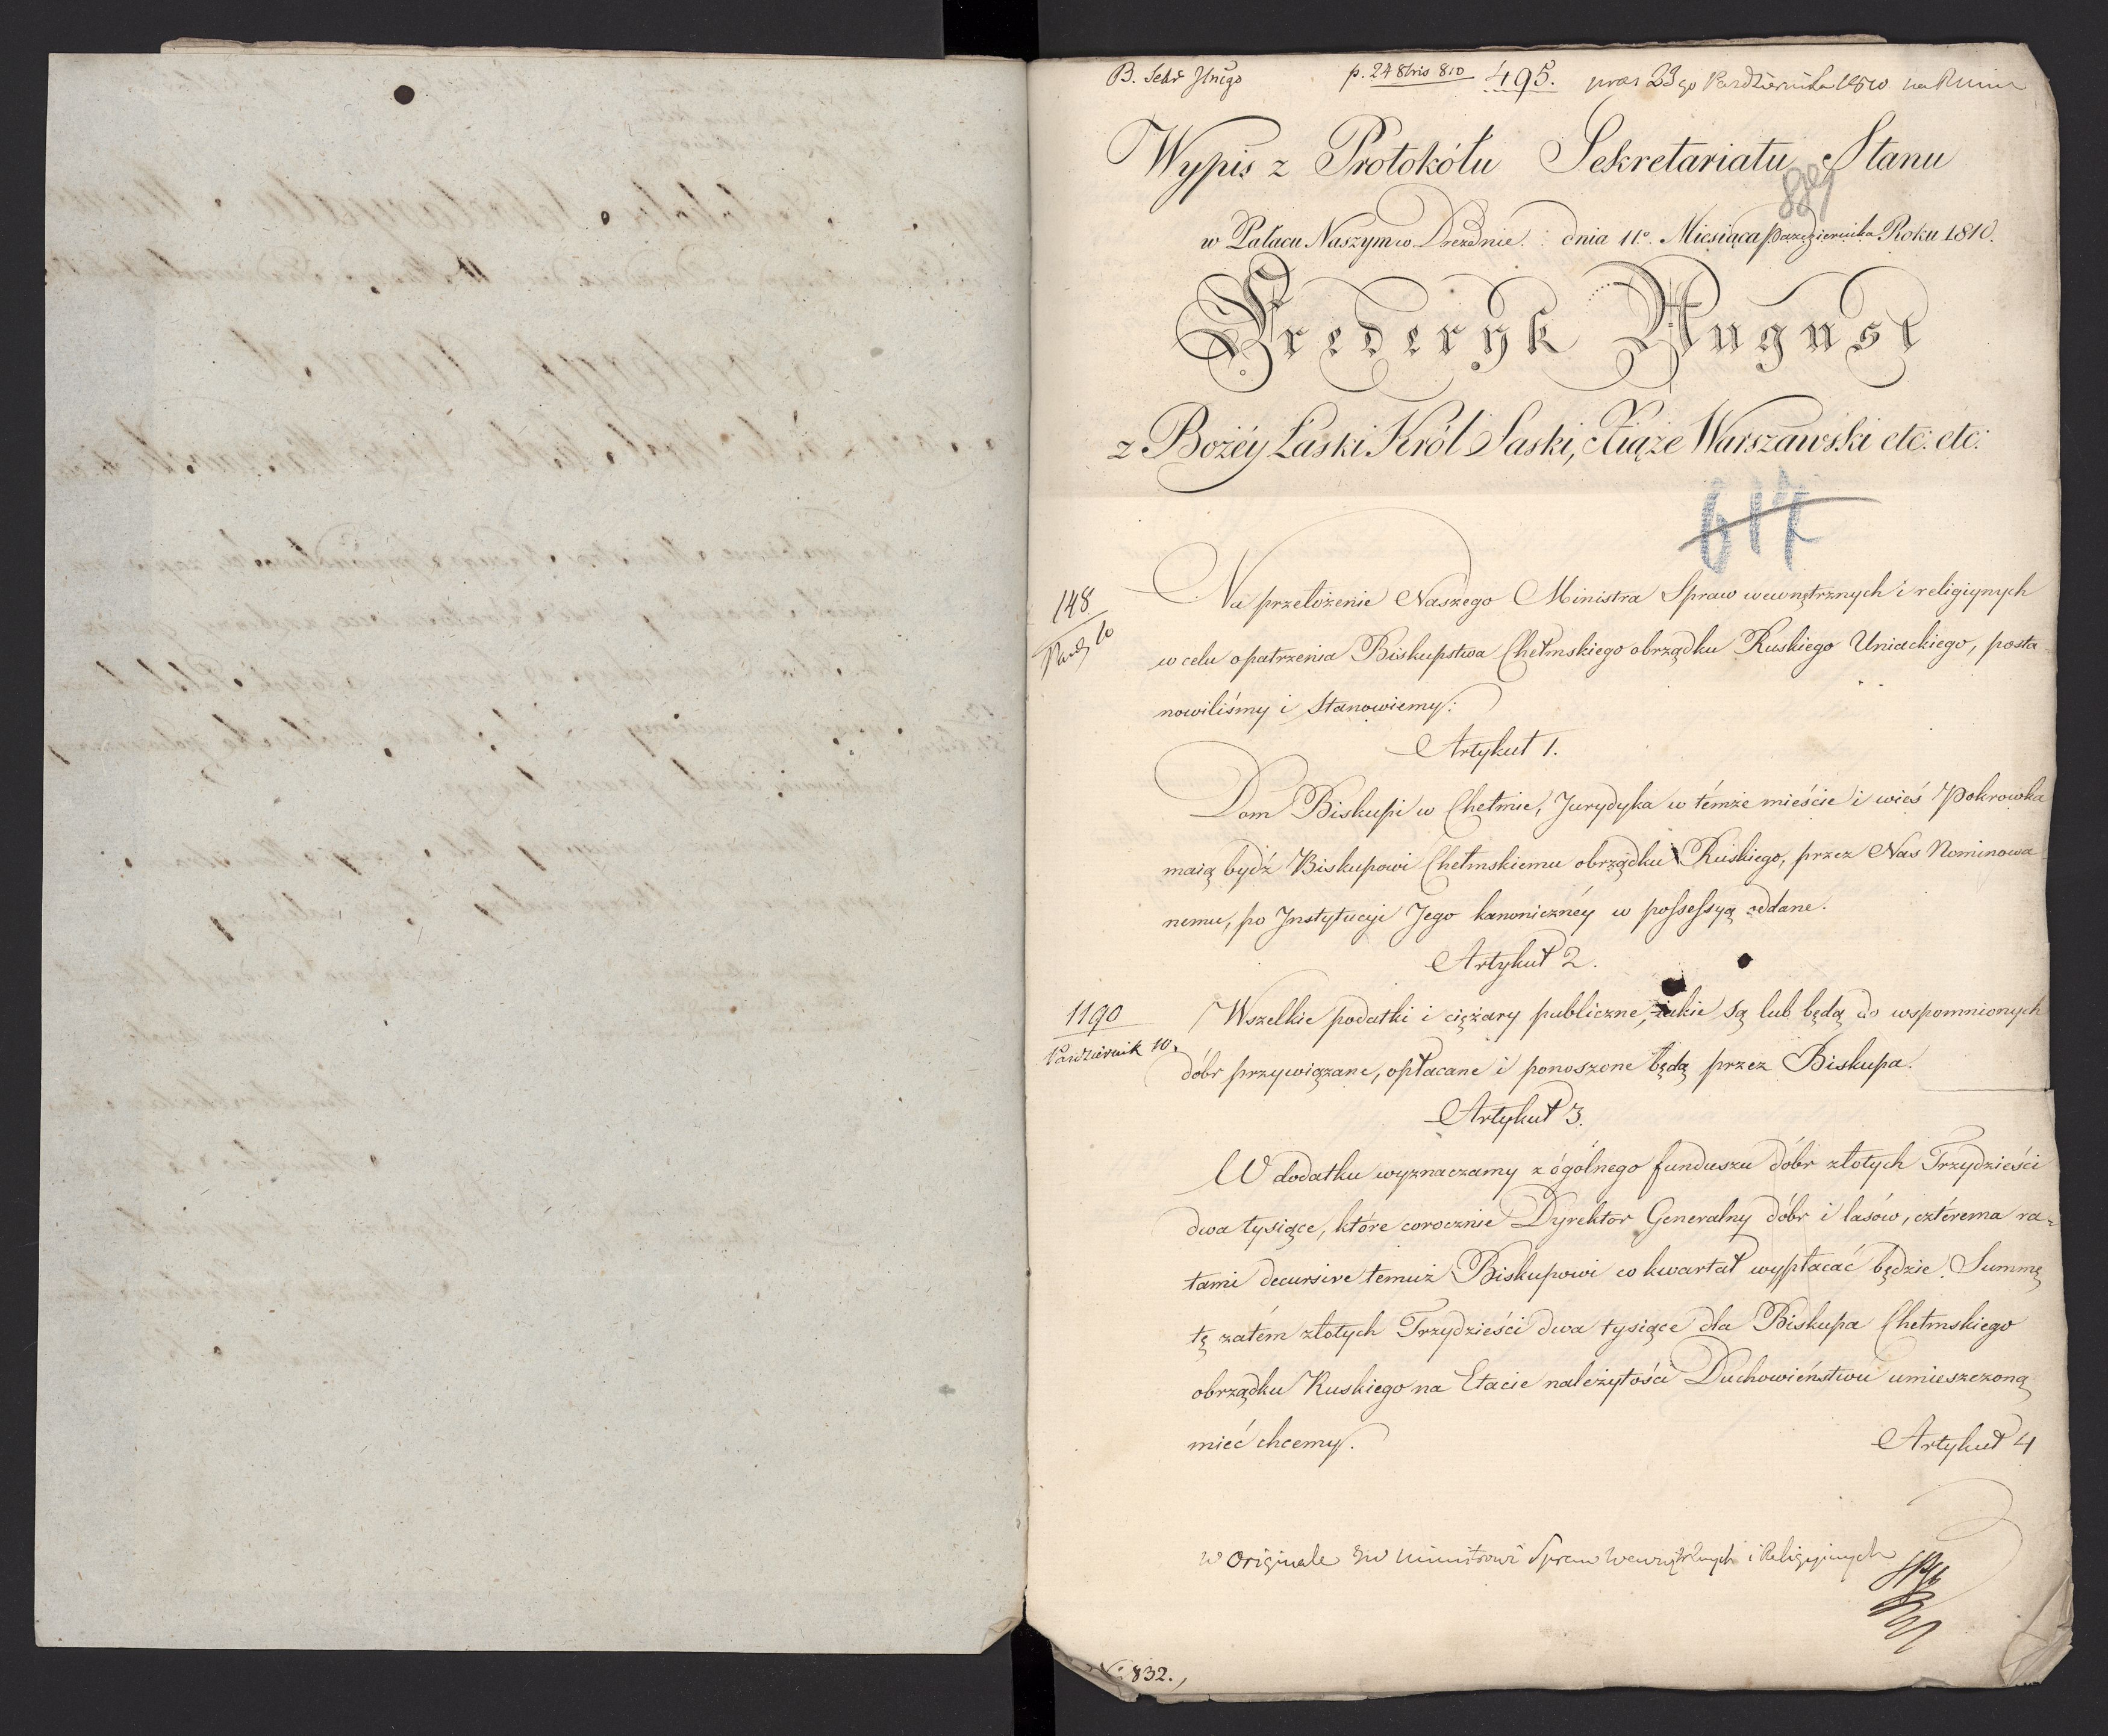 B. Sekr Jlnego
p. 24 8bris 810
495.
pras 23go Października 1810
Wypis z Protokółu Sekretariatu Stanu
889
w Pałacu Naszym w Dreznie dnia 11o Miesiąca Października Roku 1810.
Frederyk August
z Bożéy Łaski Król Saski, Xiąże Warszawski etc: etc:
617
148
Paźd 10
Na przełożenie Naszego Ministra Spraw wewnętrznych i religiynych
w celu opatrzenia Biskupstwa Chełmskiego obrządku Ruskiego Uniackiego, posta
nowiliśmy i Stanowiemy:
Artykuł 1.
Dom Biskupi w Chełmie, Jurydyka w témże mieście i wieś Pokrowka
maią bydź Biskupowi Chełmskiemu obrządku Ruskiego, przez Nas Nominowa
nemu, po Jnstytucyi Jego kanonicznéy w possessyą oddane.
Artykuł 2.
1190
Październik 10.
Wszelkie podatki i ciężary publiczne, iakie są lub będą do wspomnionych
dóbr przywiązane, opłacane i ponoszone będą przez Biskupa.
Artykuł 3.
W dodatku wyznaczamy z ógólnego funduszu dóbr złotych Trzydzieści
dwa tysiące, które corocznie Dyrektor Generalny dóbr i lasów, czterema ra-
tami decursive temuż Biskupowi co kwartał wypłacać będzie. Summę
tę zatém złotych Trzydzieści dwa tysiące dla Biskupa Chełmskiego
obrządku Ruskiego na Etacie należytości Duchowieństwu umieszczoną
mieć chcemy.
Artykuł 4
w Originale Ministrowi Spraw Wewnętrznych i Religijnych
No 832.